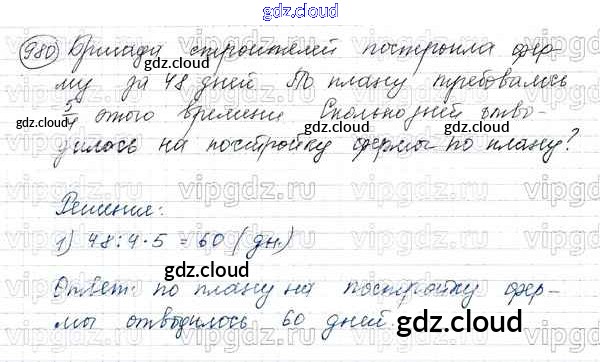 gdz.cloud
980) Бригада строителей построила фер-
му за 48 дней. По плану требовалось
5/4 этого времени. Сколько дней отво-
дилось на постройку фермы по плану?
gdz.cloud
gdz.cloud
gdz.cloud
gdz.cloud
gdz.cloud
vipgdz.ru vipgdz.ru vipgdz.ru
Решение:
1) 48:4·5 = 60 (дн)
gdz.cloud
Ответ: по плану на постройку фер-
мы отводилось 60 дней.
gdz.cloud
gdz.cloud